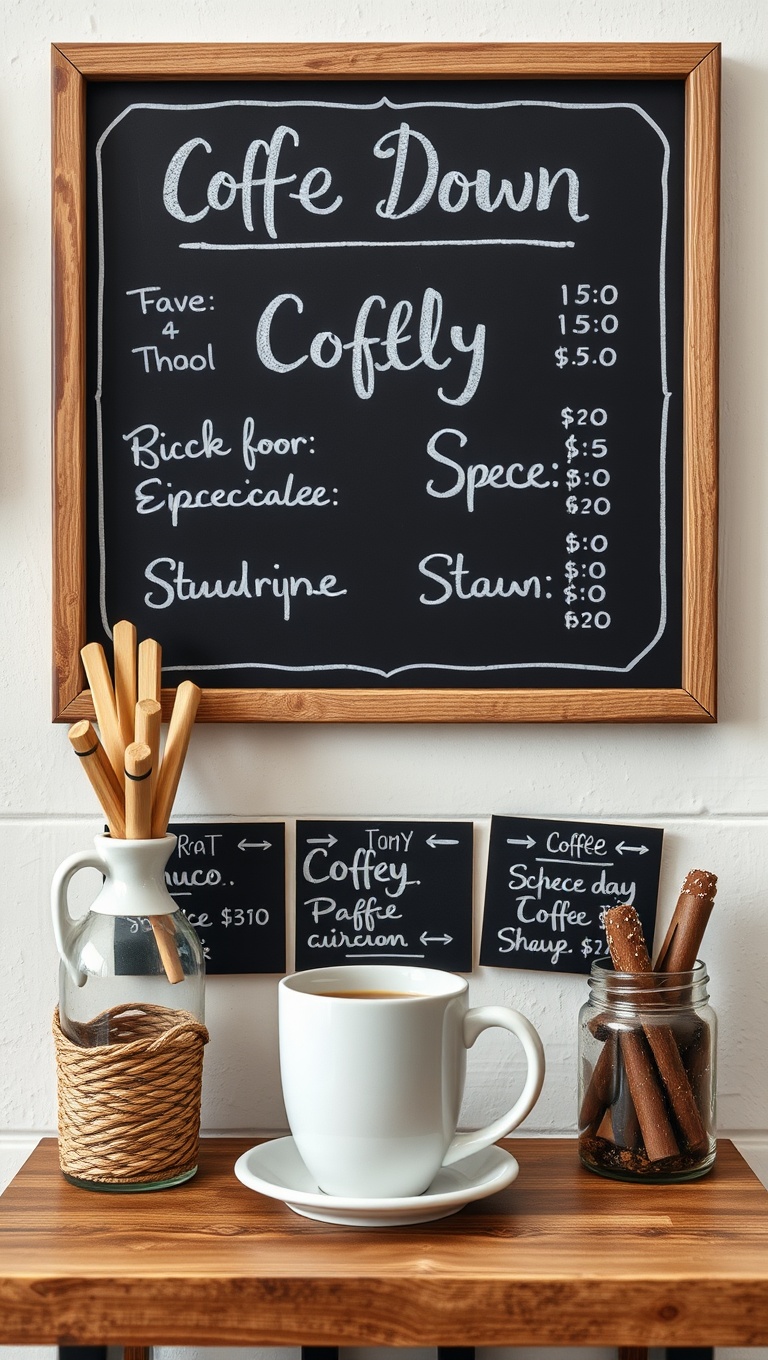 Coffe Down
Fave:
4
Thool
Coftly
15:0
15:0
$.5.0
Bicck foor:
Eipcecicalee:
Spece:
$20
$:5
$:0
$20
Stuudrijne
Staun:
$:0
$:0
$:0
$20
$310
TOMY
Coffey.
Paffce
Coffee
Schece day
Coffee
Shaup.